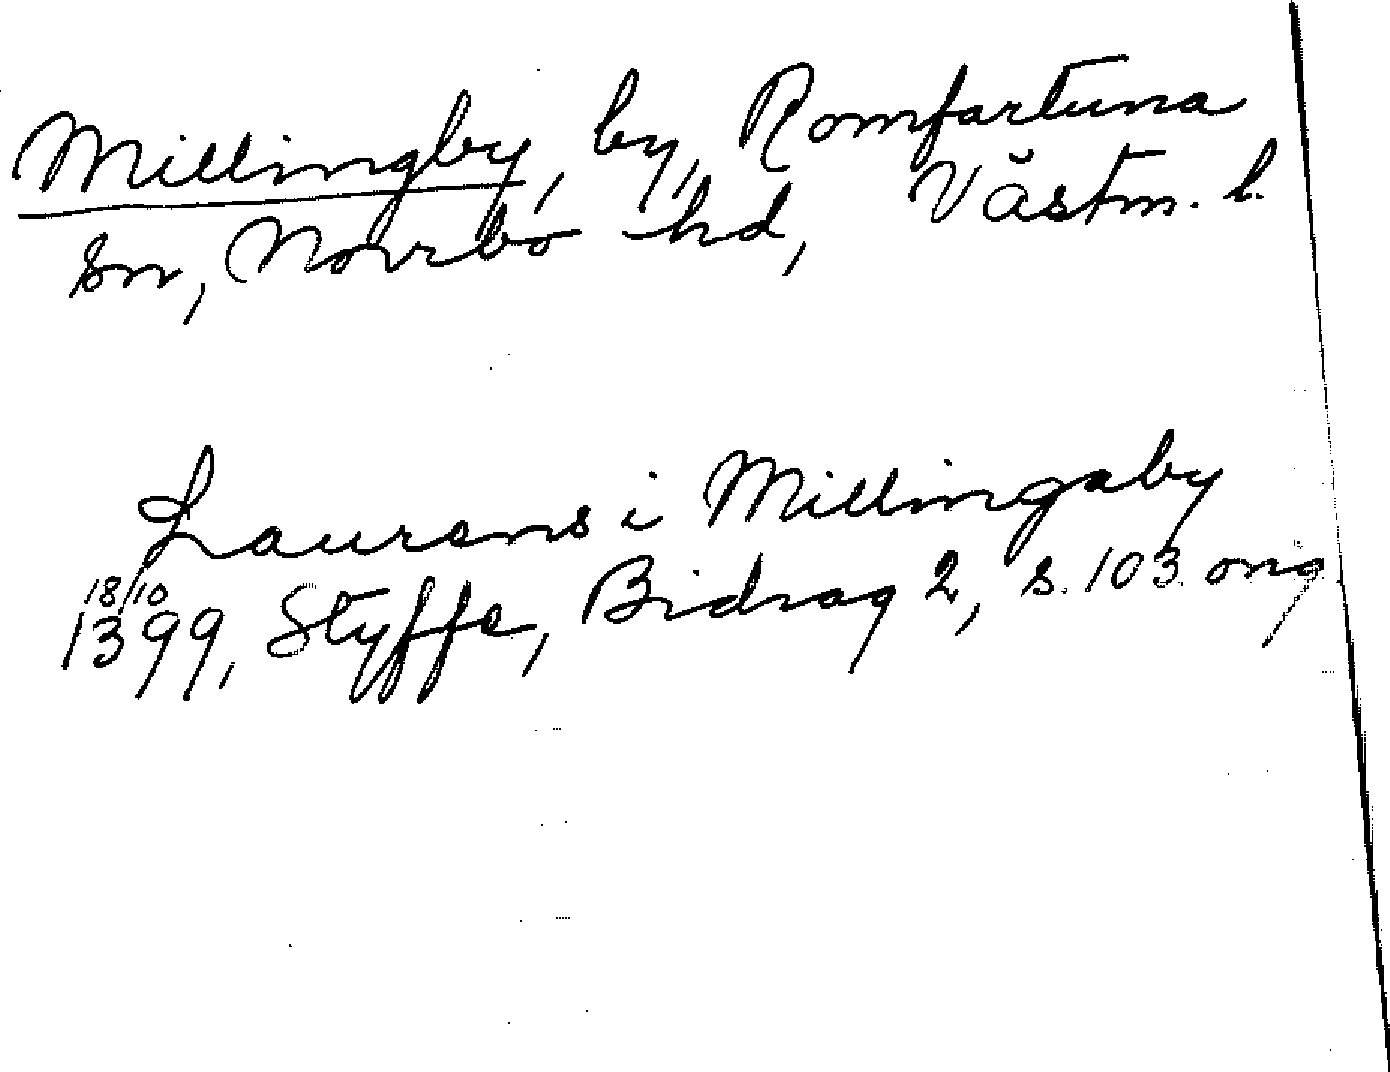 Millingby, by, Romfartuna
sn, Norrbo hd, Västm. l.
Laurens i Millingaby
18/10
1399, Styffe, Bidrag 2, s. 103. orig